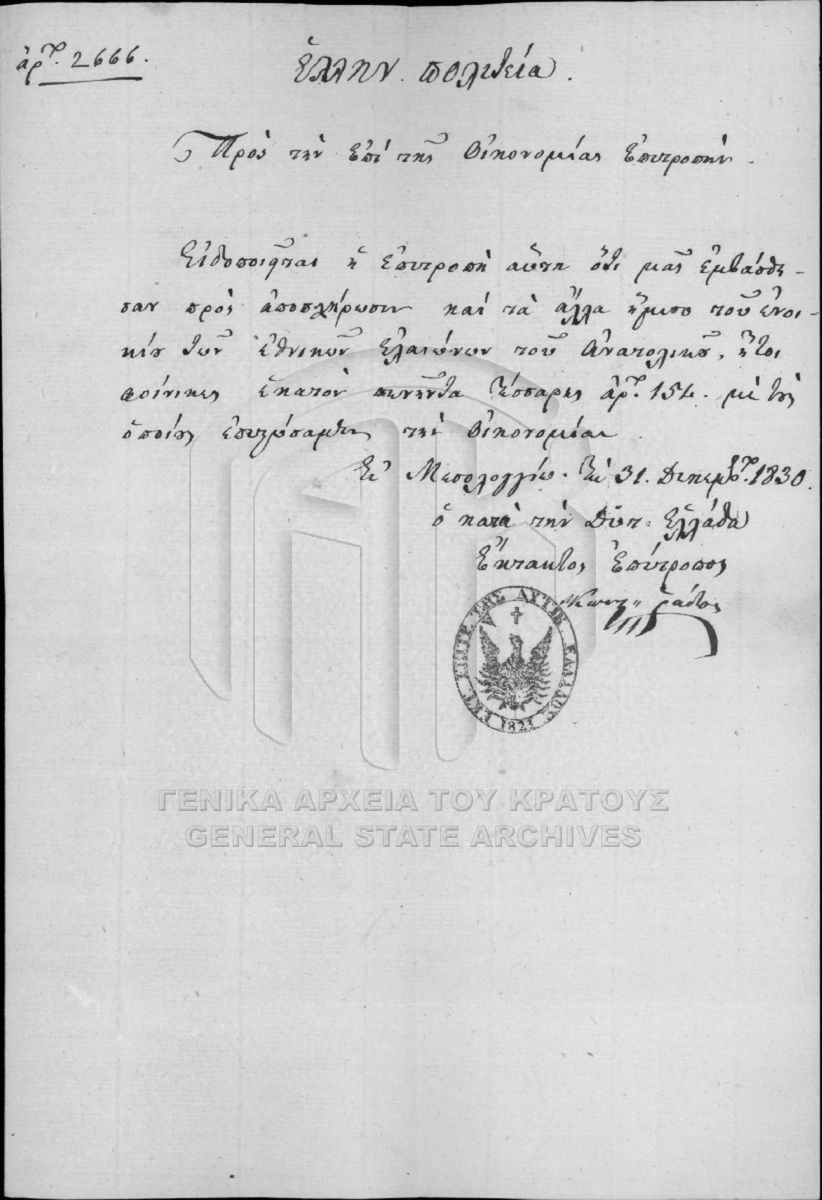 ἀρ. 2666.
Ἑλλην. Πολιτεία.
Πρὸς τὴν Ἐπὶ τῆς Οἰκονομίας Ἐπιτροπήν.
Εἰδοποιεῖται ἡ Ἐπιτροπὴ αὕτη ὅτι μᾶς ἐμβάσθη-
σαν πρὸς ἀποπλήρωσιν καὶ τὰ ἄλλα ἥμισυ τοῦ ἐνοι-
κίου τῶν ἐθνικῶν ἐλαιώνων τοῦ Ἀνατολικοῦ, ἤτοι
φοίνικες ἑκατὸν πενῆντα τέσσαρες ἀρ. 154. μὲ τοὺς
ὁποίους ἐπιστώσαμεν τὴν Οἰκονομίαν.
Ἐν Μεσολογγίῳ. Τῇ 31. Δεκεμβρ. 1830.
ὁ κατὰ τὴν Δυτ. Ἑλλάδα
Ἔκτακτος Ἐπίτροπος
Κωνστ. Ῥάδος
ΕΚΤ. ΕΠΙΤΡ. ΤΗΣ ΔΥΤΙΚ. ΕΛΛΑΔΟΣ 1821
ΓΕΝΙΚΑ ΑΡΧΕΙΑ ΤΟΥ ΚΡΑΤΟΥΣ
GENERAL STATE ARCHIVES